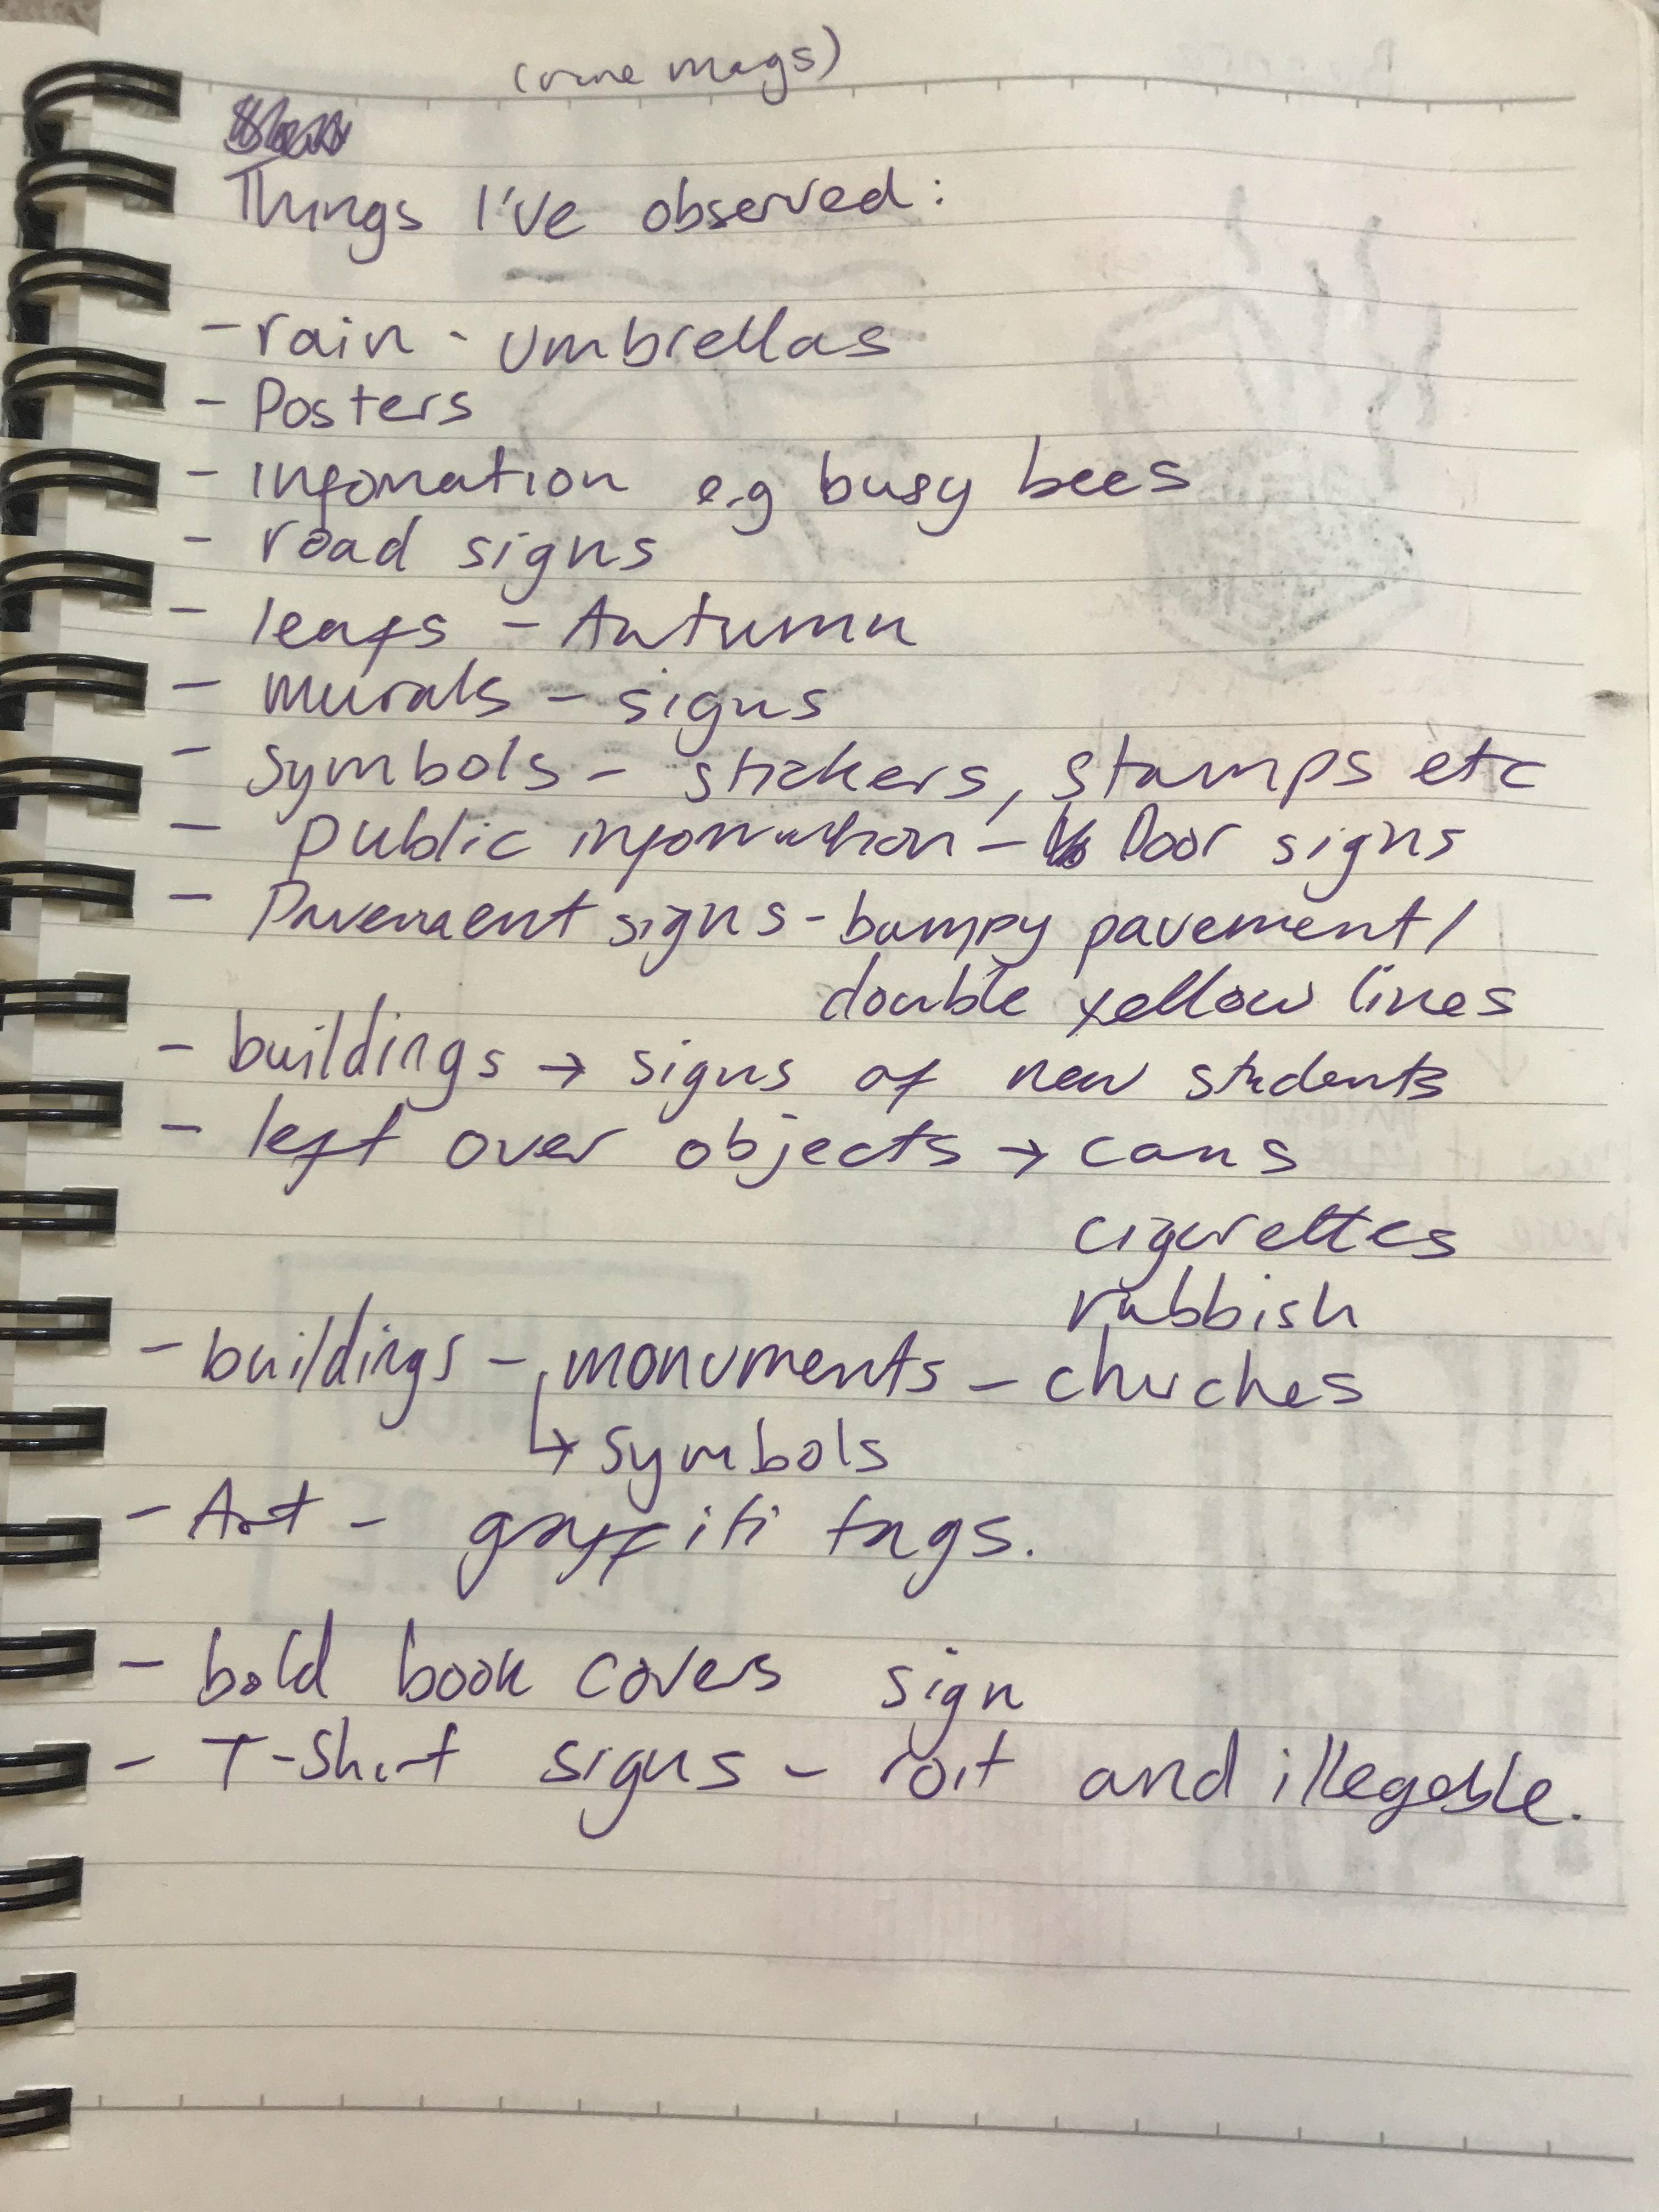 mags)
Things I've observed:
- rain - umbrellas
- Posters
- Infomation e.g busy bees
- road signs
- leafs - Autumn
- murals - signs
- Symbols - stickers, stamps etc
- public infomation - Door signs
- Pavement signs - bumpy pavement /
double yellow lines
- buildings → signs of new students
- left over objects → cans
cigerettes
rubbish
- buildings - monuments - churches
↳ symbols
- Art - graffiti tags.
- bold book covers sign
- T-Shirt signs - roit and illegable.